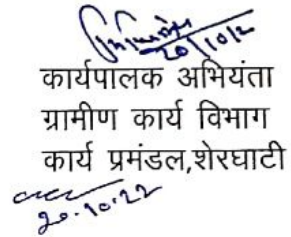 20/10/2
कार्यपालक अभियंता
ग्रामीण कार्य विभाग
कार्य प्रमंडल,शेरघाटी
20.10.22